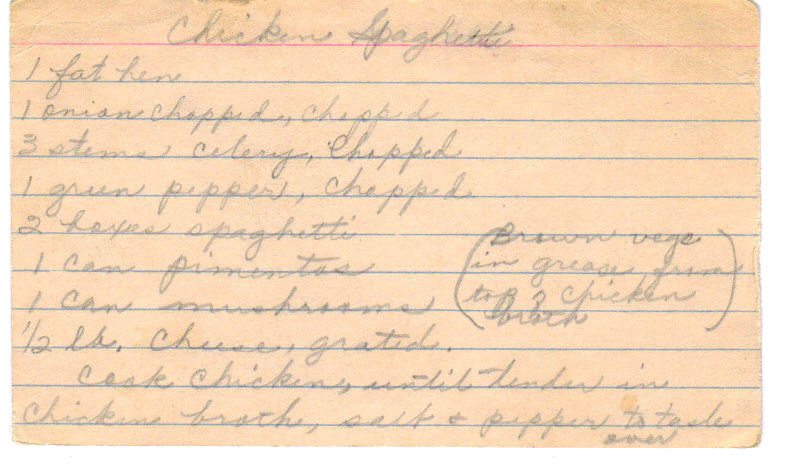 Chicken Spaghetti
1 fat hen
1 onion chopped, chopped
3 stems celery, Chopped
1 green pepper, chopped
2 boxes spaghetti
1 can pimentos
1 can mushrooms
(Brown vegs
in grease from
top of chicken
broth)
1/2 lb. cheese, grated.
Cook chicken, until tender in
chicken broth, salt & pepper to taste
over